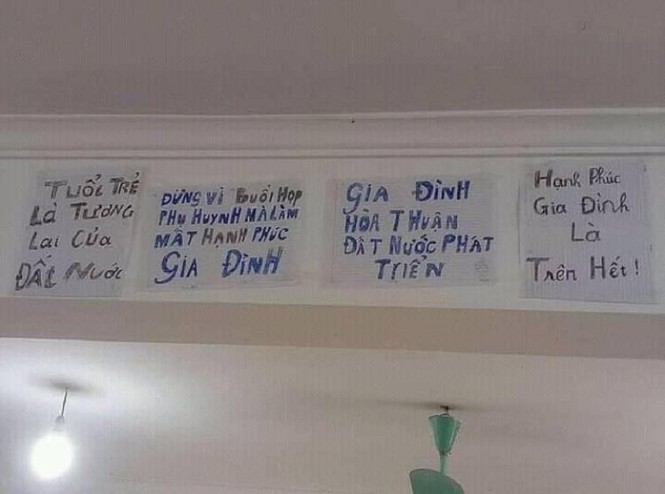 TUỔI TRẺ
LÀ TƯƠNG
Lai Của
ĐẤT NƯỚC
ĐỪNG VÌ BUỔI HỌP
PHỤ HUYNH MÀ LÀM
MẤT HẠNH PHÚC
GIA ĐÌNH
GIA ĐÌNH
HÒA THUẬN
ĐẤT NƯỚC PHÁT
TRIỂN
Hạnh Phúc
Gia Đình
Là
Trên Hết!